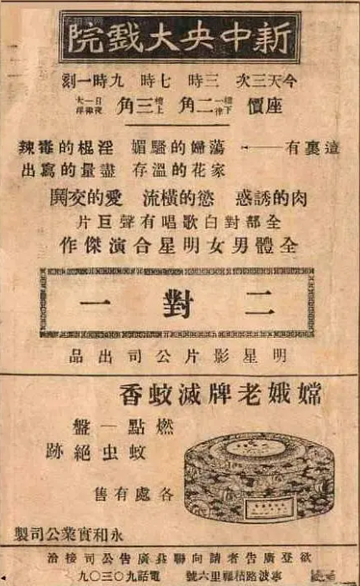 新中央大戲院
今天三次 三時 七時 九時一刻
座價 樓下一律二角 樓上三角 日夜一律大洋
這裏有—— 蕩婦的騷媚 淫棍的毒辣
家花的溫存 盡量的寫出
肉的誘惑 慾的橫流 愛的交鬨
全部對白歌唱有聲巨片
全體男女明星合演傑作
二對一
明星影片公司出品
嫦娥老牌滅蚊香
燃點一盤
蚊虫絕跡
各處有售
永和實業公司製
欲登廣告者請向聯益廣告公司接洽
寧波路積福里六號 電話九〇三〇九